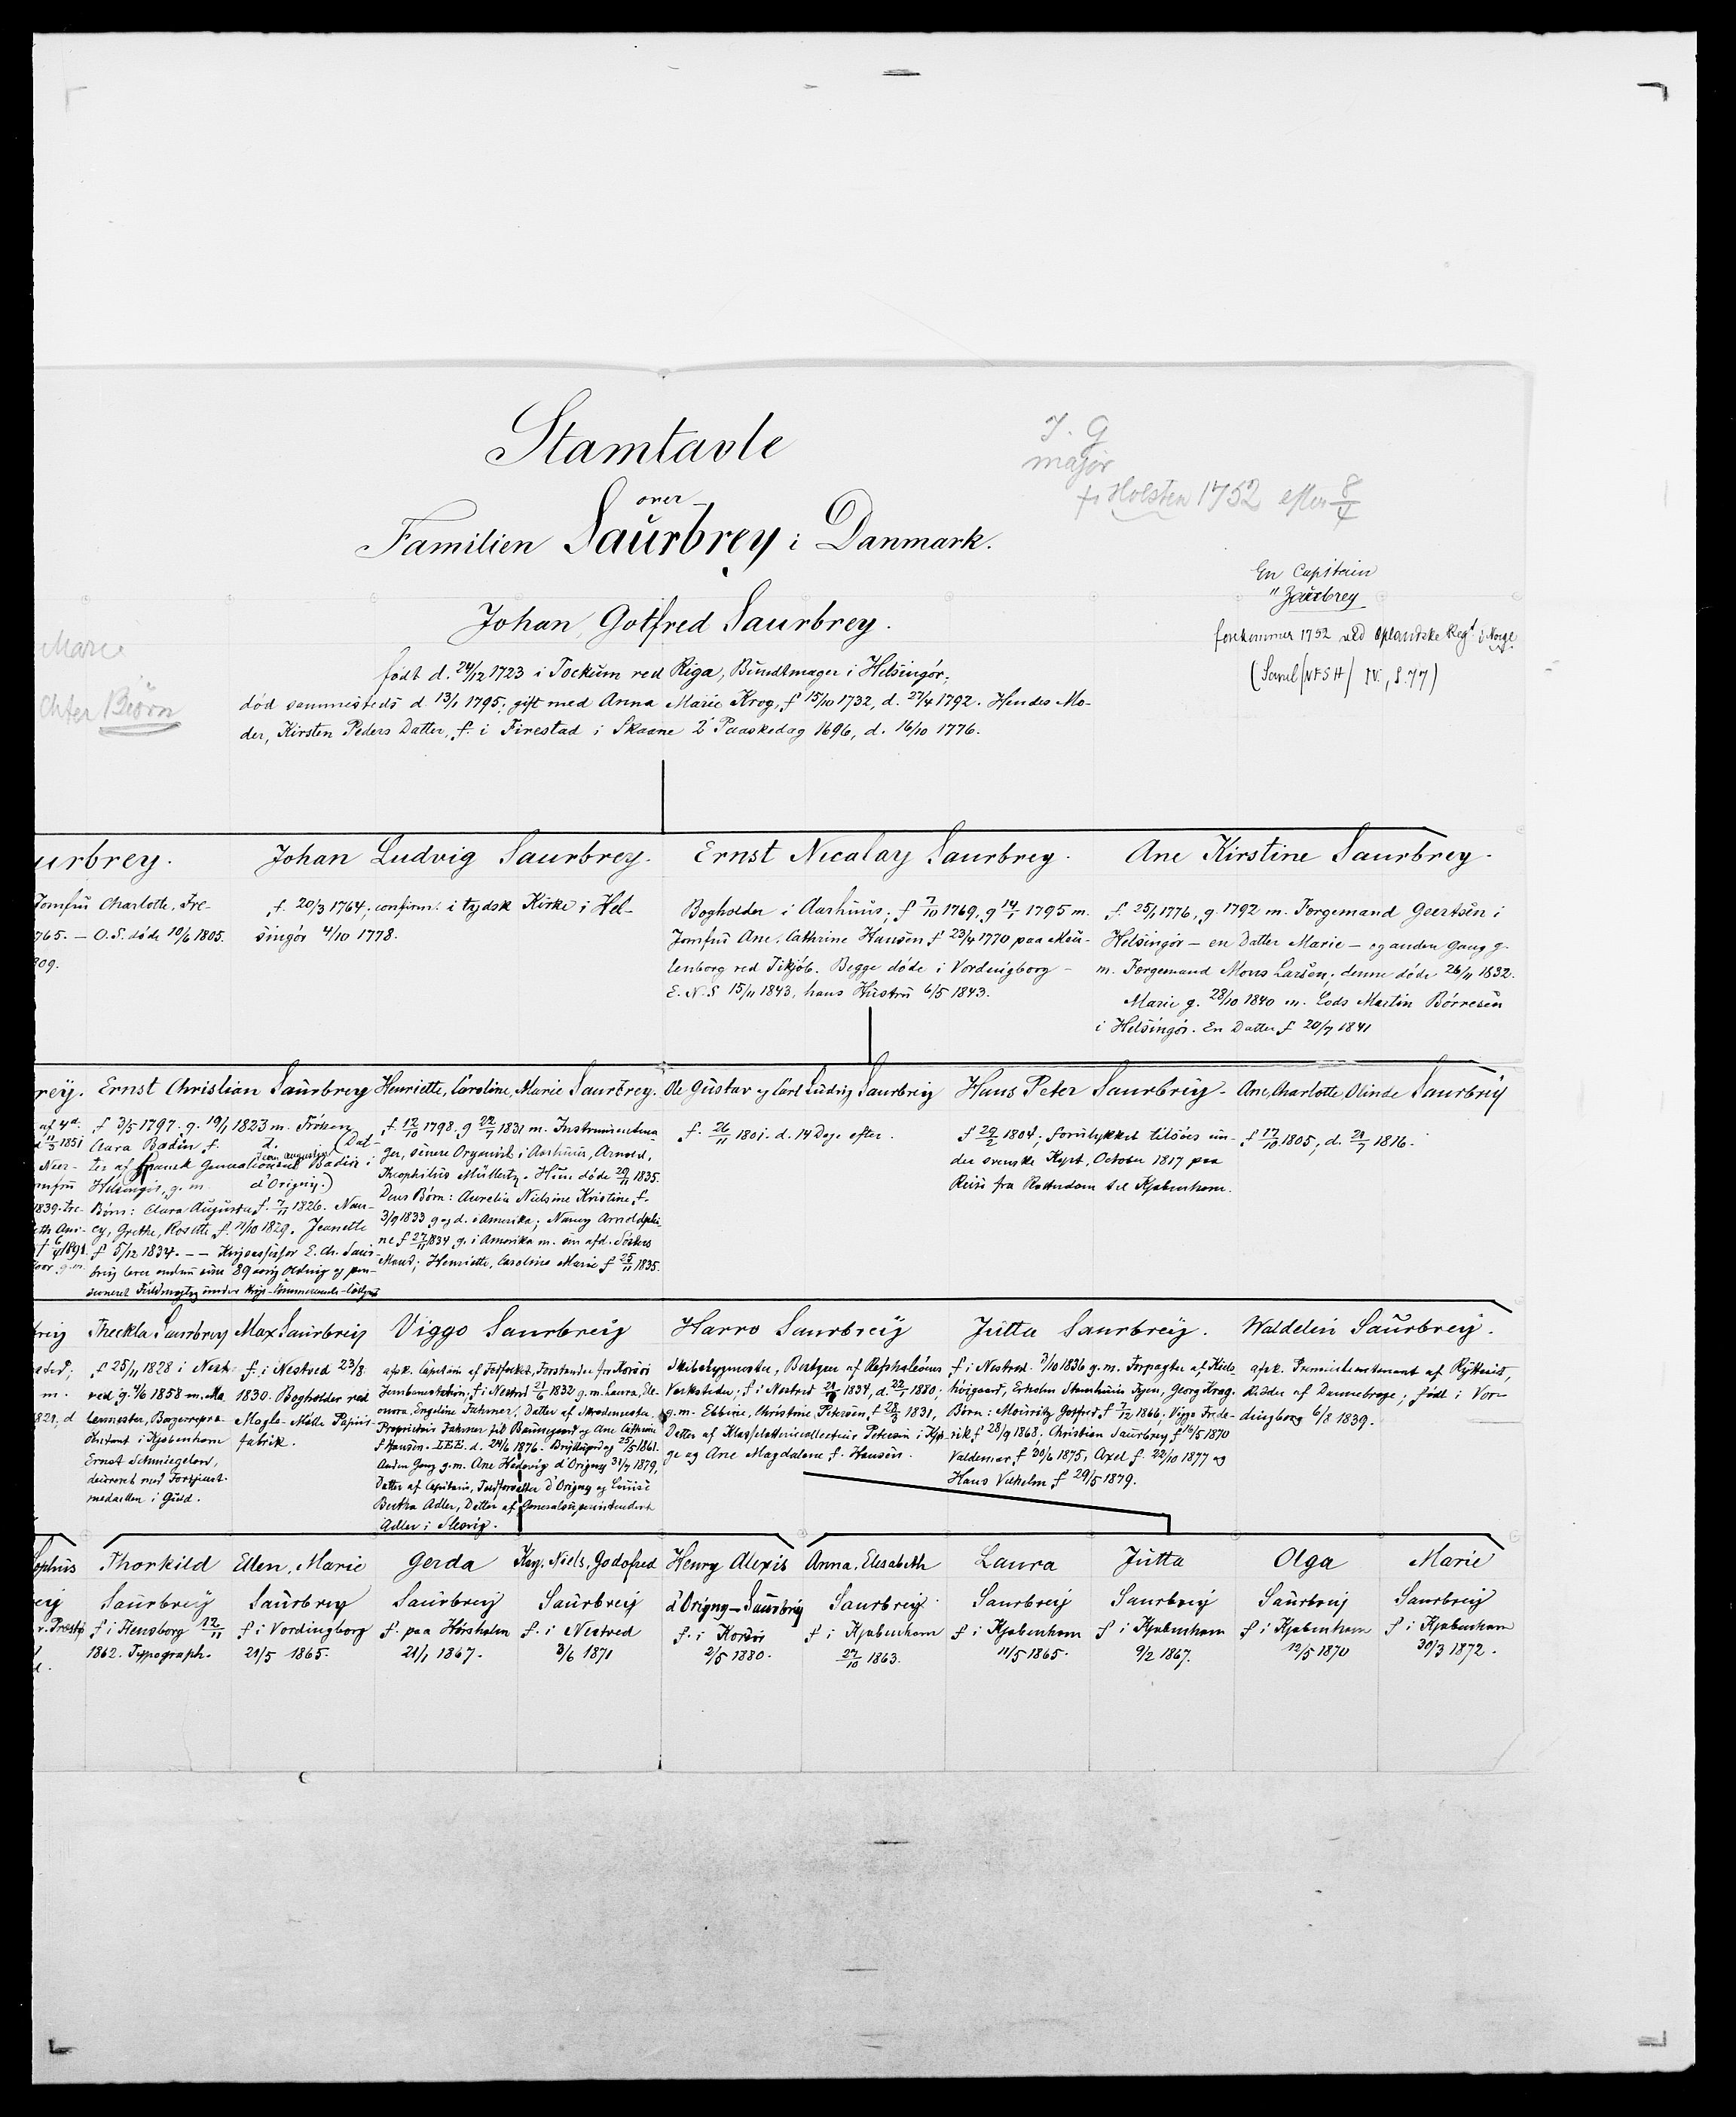 Stamtavle
over
Familien Saurbrey i Danmark.
J. G
major
fr Holsten 1752 efter 8/4
En Capitain
" Zaurbrey
forekommer 1752 ved Oplandske Regt i Norge
(Saml/NFSH/ IV, S. 77)
Marie
Biørn
Johan Gotfred Saurbrey.
født d. 24/12 1723 i Tockum ved Riga, Bundtmager i Helsingör;
död sammesteds d 13/1 1795; gift med Anna Marie Krog, f 15/10 1732, d. 27/4 1792. Hendes Mo-
der, Kirsten Peders Datter, f. i Firestad i Skaane 2' Paaskedag 1696, d. 16/10 1776.
urbrey.
Jomfru Charlotte, Fre-
765. — O.S. döde 10/6 1805.
809.
Johan Ludvig Saurbrey.
f. 20/3 1764; confirm: i tydsk Kirke i Hel-
singör 4/10 1778.
Ernst Nicolay Saurbrey.
Bogholder i Aarhuus; f 7/10 1769, g 14/1 1795 m.
Jomfru Ane, Cathrine Hansen f 23/4 1770 paa Meu-
lenborg ved Tikjöb. Begge döde i Vordingborg —
E. N. S 15/11 1843, hans Hustru 6/5 1843.
Ane Kirstine Saurbrey.
f. 25/1 1776, g. 1792 m. Færgemand Geertsen i
Helsingör — en Datter Marie — og anden Gang g.
m. Færgemand Mons Larsen; denne döde 26/11 1832.
Marie g. 28/10 1840 m. Lods Martin Börresen
i Helsingör. En Datter f 20/7 1841
rey.
af 4de
1851
1839.
Ernst Christian Saurbrey
f 3/5 1797. g. 19/1 1823 m. Fröken
Clara Badin f. d. (Dat-
ter af fransk Generalconsul Jean Augustin Badin i
Helsingör, g. m. d'Origny.)
Börn: Clara Augusta f. 7/11 1826. Nan-
cy, Grethe, Rosette f. 11/10 1829. Jeanette
f 5/12 1834. —— Krigsassessor E. Ch. Saur-
brey lever endnu som 89 aarig Olding og pen-
sioneret Fuldmægtig under
Henriette, Caroline, Marie Saurbrey.
f. 12/10 1798. g 22/7 1831 m. Instrumentma-
ger, senere Organist i Aarhuus, Arnold,
Theophilus Müllertz. Hun döde 29/11 1835.
Deres Börn: Aurelia Nielsine Kristine, f.
3/9 1833 g og d. i Amerika; Nancy Arnoldphi-
ne f 27/11 1834 g. i Amerika m. sin afd. Sösters
Mand; Henriette, Caroline Marie f 25/11 1835.
Ole Gustav og Carl Ludvig Saurbrey
f. 26/11 1801. d. 14 Dage efter.
Hans Peter Saurbrey.
f 29/2 1804; forulykket tilsöes un-
der svenske Kyst, October 1817 paa
Reise fra Rotterdam til Kjøbenhavn.
Ane, Charlotte, Olinde Saurbrey
f 17/10 1805, d. 21/7 1816.
brey
m.
1829, d
Theckla Saurbrey
f 25/11 1828 i Nest-
ved g. 4/6 1858 m. Ma-
lermester, Borgerrepræ-
sentant i Kjøbenhavn
Ernst Schmiegelow,
decoreret med Fortjenst-
medaillen i Guld.
Max Saurbrey
f. i Nestved 23/8
1830. Bogholder ved
Magle-Mölle Papiir-
fabrik.
Viggo Saurbrey
afsk. Capitain af Fodfolket, Forstander for Korsör
Jernbanestation; f. i Nestved 21/6 1832 g. m. Laura, Ele-
onora, Engeline Fahrner, Datter af
Proprietair Fahrner til og Ane Cathrine
f Hansen. L.E.E. d. 24/6 1876. 25/5 1861.
Anden Gang g. m. Ane Hedevig d'Origny 31/7 1879,
Datter af Capitain, Toldforvalter d'Origny og Louise
Bertha Adler, Datter af Generalsuperintendent
Adler i Slesvig.
Harro Saurbrey
Skibsbygmester, Bestyrer af Refshaleöens
Værksteder; f i Nestved 1834, d. 22/1 1880;
g. m. Ebbine, Christine Petersen, f 28/3 1831,
Datter af Klasselottericollecteur Petersen i Kjö-
ge og Ane Magdalene f. Hansen.
Jutta Saurbrey.
f. i Nestved 3/10 1836 g. m. Forpagter af
Erholm Steenhuus Fyen, Georg Krag.
Börn: Mouritz Gotfred, f 7/12 1866; Viggo Frede-
rik f 28/9 1868; Christian Saurbrey f 14/5 1870
Valdemar f 20/6 1875, Axel f. 22/10 1877 og
Hans Vilhelm f 29/5 1879.
Waldelin Saurbrey.
afsk. Premierlieutenant af Rytteriet,
Ridder af Dannebroge; född i Vor-
dingborg 6/8 1839.
ophus
Thorkild
Saurbrey
f i Flensborg 12/11
1862. Typograph.
Ellen, Marie
Saurbrey
f i Vordingborg
21/5 1865.
Gerda
Saurbrey
f. paa Hörsholm
21/1 1867.
Kay, Niels, Godofred
Saurbrey
f. i Nestved
3/6 1871
Henry Alexis
d'Origny—Saurbrey
f. i Korsör
2/5 1880.
Anna, Elisabeth
Saurbrey
f i Kjøbenhavn
27/10 1863.
Laura
Saurbrey
f i Kjøbenhavn
11/5 1865.
Jutta
Saurbrey
f i Kjøbenhavn
9/2 1867.
Olga
Saurbrey
f i Kjøbenhavn
12/5 1870
Marie
Saurbrey
f i Kjøbenhavn
30/3 1872.